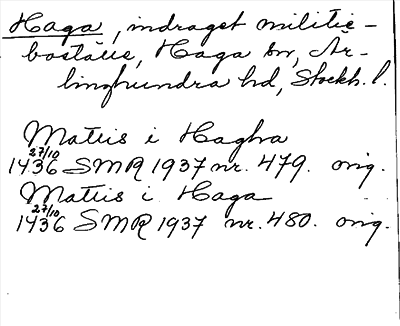 Haga, indraget militie-
boställe, Haga sn, Är-
linghundra hd, Stockh. l.
Mattis i Haghra
27/10
1436 SMR 1937 nr. 479. orig.
Mattis i Haga
27/10
1436 SMR 1937 nr. 480. orig.